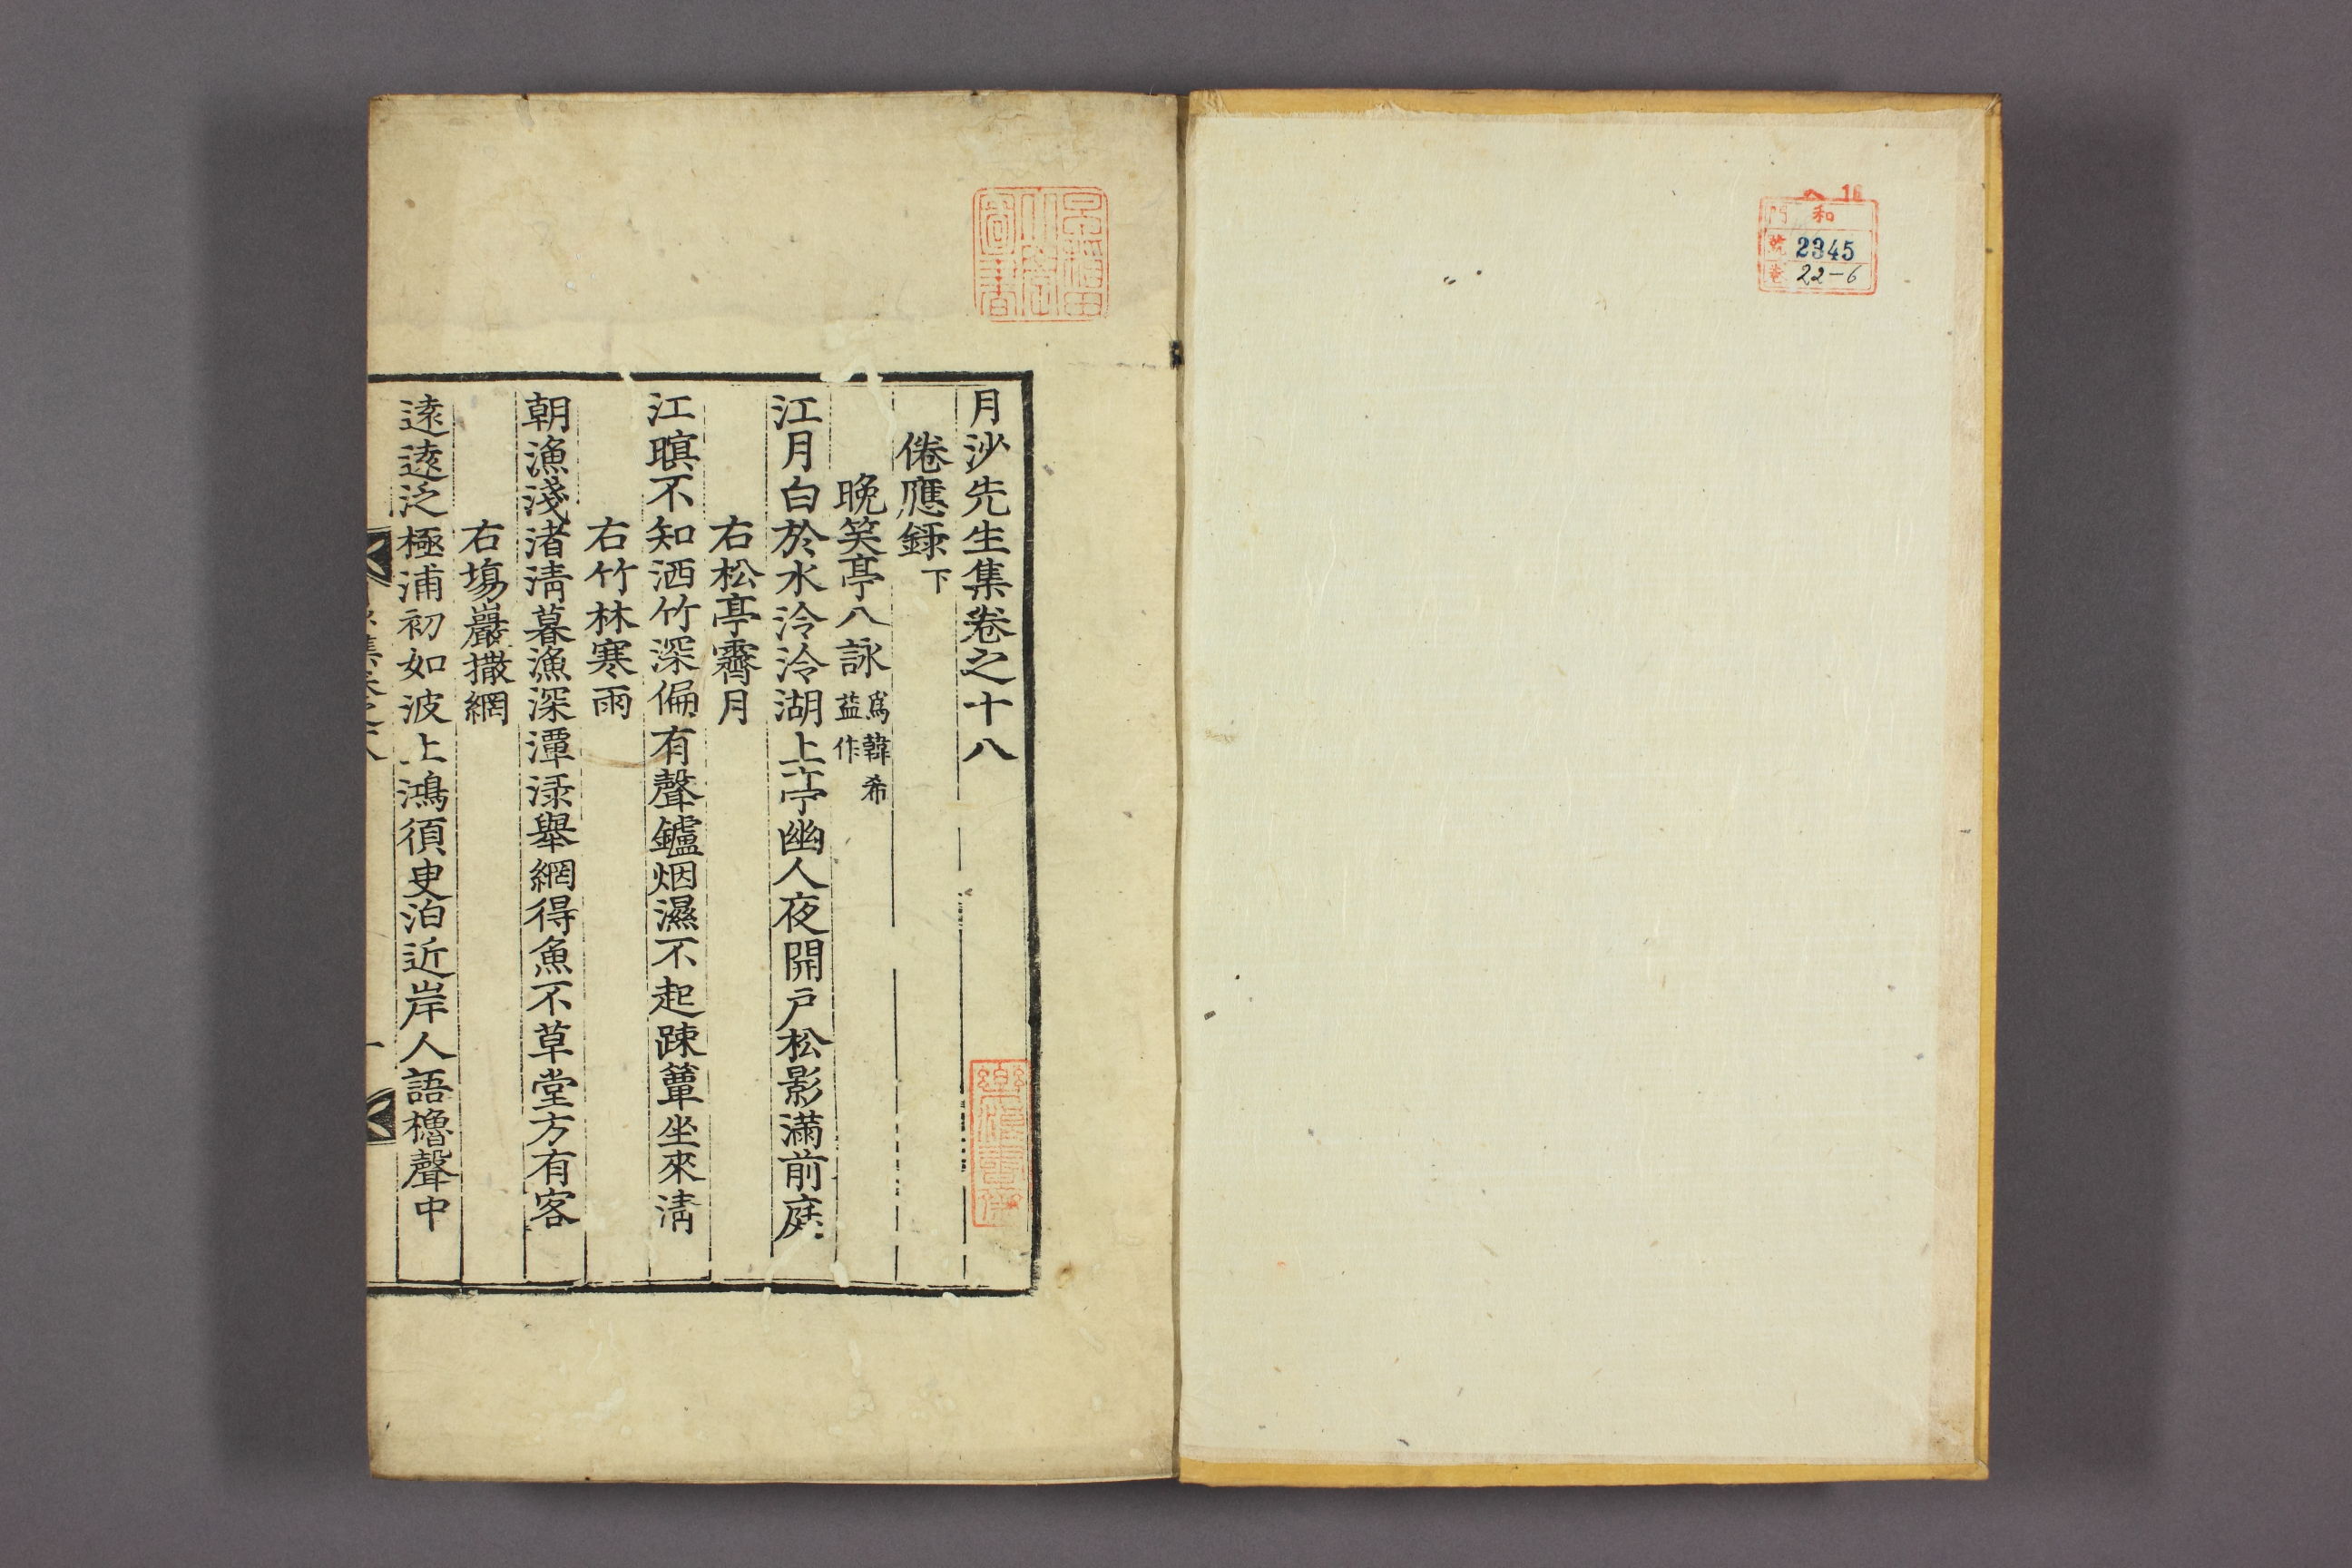 16
和
門
2345
號
22-6
巻
早稲田
大學
圖書
月沙先生集卷之十八
倦應録下
晩笑亭八詠爲韓希
益作
江月白於水泠泠湖上亭幽人夜開戸松影滿前庭
右松亭霽月
江暝不知洒竹深偏有聲鑪烟濕不起踈簟坐來淸
右竹林寒雨
朝漁淺渚淸暮漁深潭渌舉網得魚不草堂方有客
右塲巖撒網
逺逺泛極浦初如波上鴻須㬰泊近岸人語櫓聲中